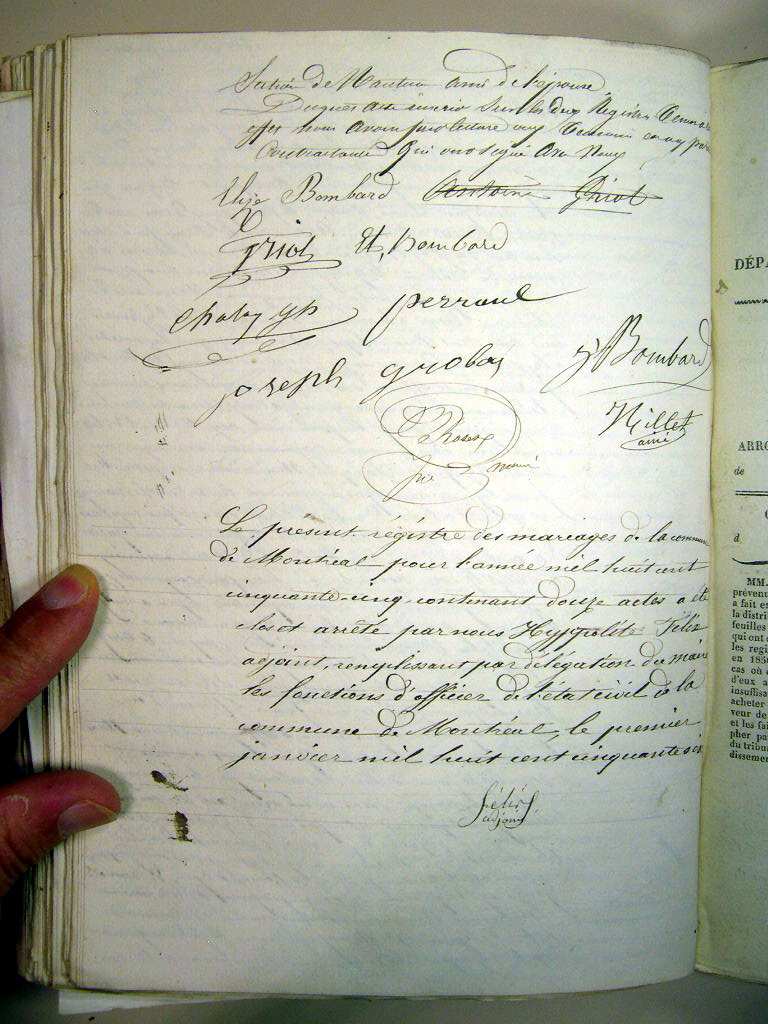 Section de Nantua ami de l'épouse
Duquel acte inscrit sur les deux Registres
nous avons fait lecture aux témoins et aux par
Contractantes qui ont signé avec Nous
Elize Bombard Antoine Griot
Griot Et, Bombard
Chatay perraul
joseph grobas J Bombard
Millet
ami
maire
Le présent régistre des mariages de la commune
de Montréal pour l'année mil huit cent
cinquante-cinq contenant douze actes a été
clos et arrêté par nous Hyppolite Félix
adjoint, remplissant par délégation du maire
les fonctions d'officier de l'état civil de la
commune de Montréal, le premier
janvier mil huit cent cinquante six
félix
adjoint
DÉPA
ARRO
de
d
MM.
prévenu
a fait es
la distri
feuilles
qui ont é
les regi
en 1856
cas où
d'eux a
insuffisa
acheter
veur de
et les fai
pher pa
du tribu
dissemen